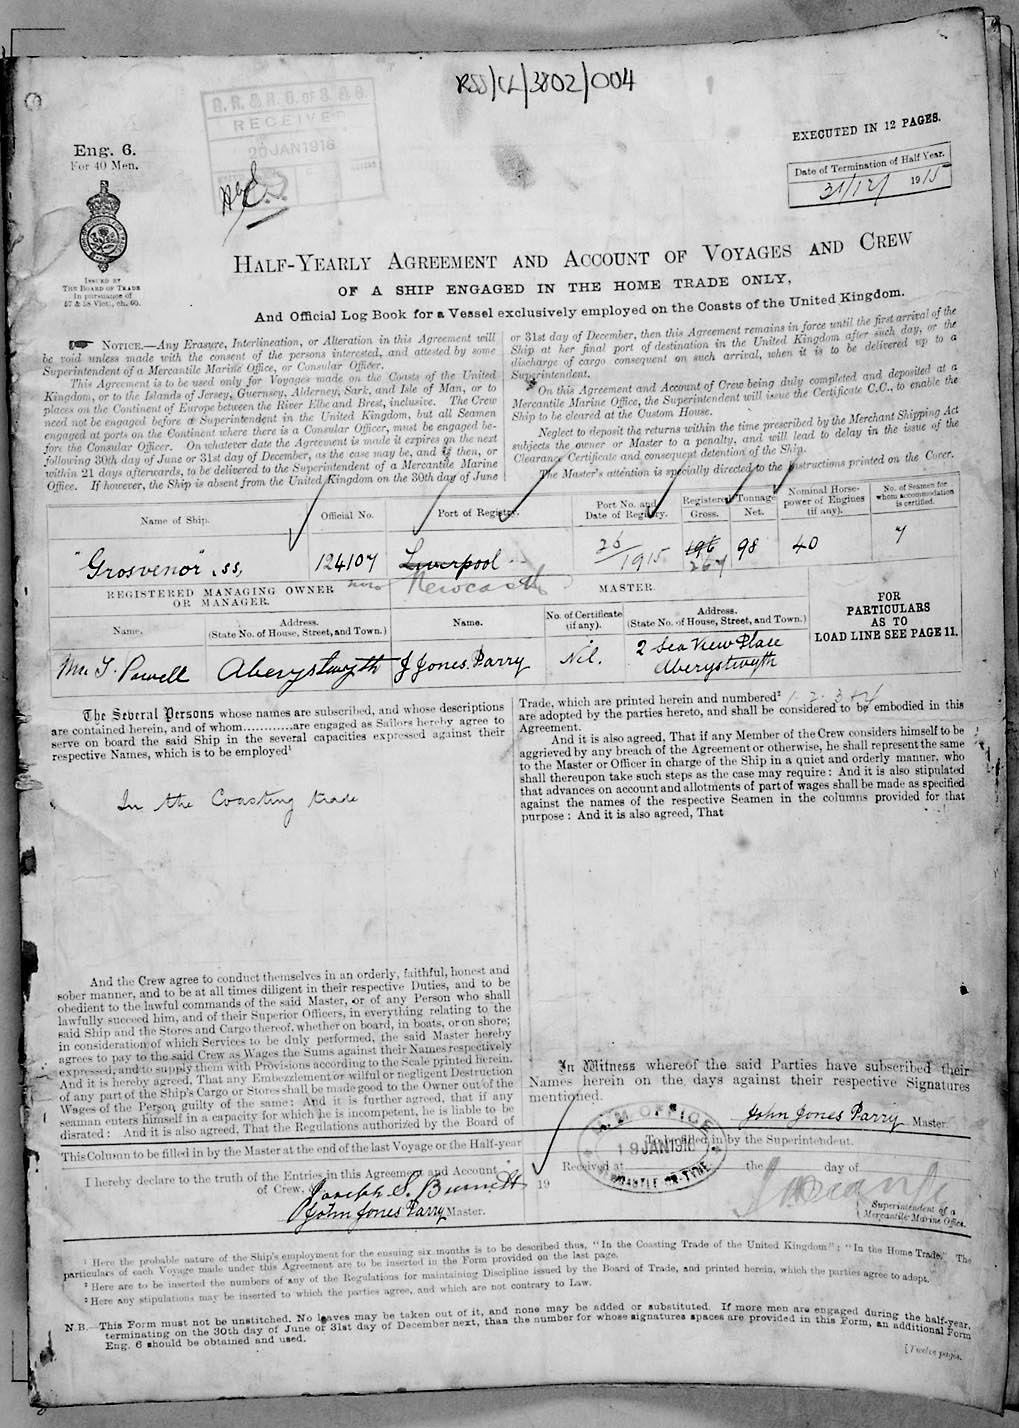 RSS/CL/3802/004
G. R. & R. O. OF S. & S.
RECEIVED
20 JAN 1916
EXECUTED IN 12 PAGES.
Eng. 6.
For 40 Men.
Date of Termination of Half Year.
31/12/ 1915
ISSUED BY
THE BOARD OF TRADE
In pursuance of
57 & 58 Vict., ch. 60.
HALF-YEARLY AGREEMENT AND ACCOUNT OF VOYAGES AND CREW
OF A SHIP ENGAGED IN THE HOME TRADE ONLY,
And Official Log Book for a Vessel exclusively employed on the Coasts of the United Kingdom.
NOTICE.—Any Erasure, Interlineation, or Alteration in this Agreement will
be void unless made with the consent of the persons interested, and attested by some
Superintendent of a Mercantile Marine Office, or Consular Officer.
This Agreement is to be used only for Voyages made on the Coasts of the United
Kingdom, or to the Islands of Jersey, Guernsey, Alderney, Sark, and Isle of Man, or to
places on the Continent of Europe between the River Elbe and Brest, inclusive. The Crew
need not be engaged before a Superintendent in the United Kingdom, but all Seamen
engaged at ports on the Continent where there is a Consular Officer, must be engaged be-
fore the Consular Officer. On whatever date the Agreement is made it expires on the next
following 30th day of June or 31st day of December, as the case may be, and is then, or
within 21 days afterwards, to be delivered to the Superintendent of a Mercantile Marine
Office. If however, the Ship is absent from the United Kingdom on the 30th day of June
or 31st day of December, then this Agreement remains in force until the first arrival of the
Ship at her final port of destination in the United Kingdom after such day, or the
discharge of cargo consequent on such arrival, when it is to be delivered up to a
Superintendent.
On this Agreement and Account of Crew being duly completed and deposited at a
Mercantile Marine Office, the Superintendent will issue the Certificate C.C., to enable the
Ship to be cleared at the Custom House.
Neglect to deposit the returns within the time prescribed by the Merchant Shipping Act
subjects the owner or Master to a penalty, and will lead to delay in the issue of the
Clearance Certificate and consequent detention of the Ship.
The Master's attention is specially directed to the Instructions printed on the Cover.
Name of Ship. Official No. Port of Registry. Port No. and Date of Registry. Registered Tonnage Gross. Net. Nominal Horse-power of Engines (if any). No. of Seamen for whom accommodation is certified.
"Grosvenor" ss, 124107 Liverpool 26/1915 196 98 40 7
Newcastle 267
REGISTERED MANAGING OWNER
OR MANAGER.
MASTER.
Name. Address. (State No. of House, Street, and Town.) Name. No. of Certificate (if any). Address. (State No. of House, Street, and Town.)
FOR
PARTICULARS
AS TO
LOAD LINE SEE PAGE 11.
Powell Aberystwyth J Jones Parry Nil. 2 Sea View Place
Aberystwyth
The Several Persons whose names are subscribed, and whose descriptions
are contained herein, and of whom............are engaged as Sailors hereby agree to
serve on board the said Ship in the several capacities expressed against their
respective Names, which is to be employed¹
In the Coasting trade
And the Crew agree to conduct themselves in an orderly, faithful, honest and
sober manner, and to be at all times diligent in their respective Duties, and to be
obedient to the lawful commands of the said Master, or of any Person who shall
lawfully succeed him, and of their Superior Officers, in everything relating to the
said Ship and the Stores and Cargo thereof, whether on board, in boats, or on shore;
in consideration of which Services to be duly performed, the said Master hereby
agrees to pay to the said Crew as Wages the Sums against their Names respectively
expressed, and to supply them with Provisions according to the Scale printed herein.
And it is hereby agreed, That any Embezzlement or wilful or negligent Destruction
of any part of the Ship's Cargo or Stores shall be made good to the Owner out of the
Wages of the Person guilty of the same: And it is further agreed, that if any
seaman enters himself in a capacity for which he is incompetent, he is liable to be
disrated: And it is also agreed, That the Regulations authorized by the Board of
Trade, which are printed herein and numbered² 1. 2. 3 & 4
are adopted by the parties hereto, and shall be considered to be embodied in this
Agreement.
And it is also agreed, That if any Member of the Crew considers himself to be
aggrieved by any breach of the Agreement or otherwise, he shall represent the same
to the Master or Officer in charge of the Ship in a quiet and orderly manner, who
shall thereupon take such steps as the case may require: And it is also stipulated
that advances on account and allotments of part of wages shall be made as specified
against the names of the respective Seamen in the columns provided for that
purpose: And it is also agreed, That
In Witness whereof the said Parties have subscribed their
Names herein on the days against their respective Signatures
mentioned.
John Jones Parry Master.
This Column to be filled in by the Master at the end of the last Voyage or the Half-year
I hereby declare to the truth of the Entries in this Agreement and Account
of Crew,
Joseph S. Burnett
John Jones Parry Master.
To be filled in by the Superintendent.
M. M. OFFICE
19 JAN 1916
NEWCASTLE-ON-TYNE
Received at the day of
19
Superintendent of a
Mercantile Marine Office.
¹ Here the probable nature of the Ship's employment for the ensuing six months is to be described thus, "In the Coasting Trade of the United Kingdom"; "In the Home Trade." The
particulars of each Voyage made under this Agreement are to be inserted in the Form provided on the last page.
² Here are to be inserted the numbers of any of the Regulations for maintaining Discipline issued by the Board of Trade, and printed herein, which the parties agree to adopt.
³ Here any stipulations may be inserted to which the parties agree, and which are not contrary to Law.
N.B.—This Form must not be unstitched. No leaves may be taken out of it, and none may be added or substituted. If more men are engaged during the half-year,
terminating on the 30th day of June or 31st day of December next, than the number for whose signatures spaces are provided in this Form, an additional Form
Eng. 6 should be obtained and used.
[Twelve pages.